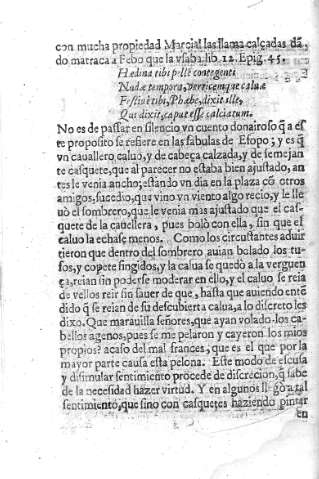 con mucha propiedad Marcial las llama calçadas dã,
do matraca a Febo que la vsaba lib. 12. Epig. 45.
Hædina tibi pelle contegenti
Nudæ tempora, verticemque caluæ
Festiuè tibi, Phæbe, dixit ille,
Qui dixit, caput esse calciatum.
No es de passar en silencio vn cuento donairoso q̃ a es
te proposito se refiere en las fabulas de Esopo; y es q̃
vn cauallero caluo, y de cabeça calzada, y de semejan
te casquete, que al parecer no estaba bien ajustado, an
tes le venia ancho; estando vn dia en la plaza cõ otros
amigos, sucedio, que vino vn viento algo recio, y le lle
uò el sombrero, que le venia mas ajustado que el cas-
quete de la cauellera, pues bolò con ella, sin que el
caluo la echase menos. Como los circustantes aduir
tieron que dentro del sombrero auian bolado los tu-
fos, y copete fingidos, y la calua se quedò a la verguen
ça, reian sin poderse moderar en ello, y el caluo se reia
de vellos reir sin sauer de que, hasta que auiendo entẽ
dido q̃ se reian de su descubierta calua, a lo discreto les
dixo. Que marauilla señores, que ayan volado los ca-
bellos agenos, pues se me pelaron y cayeron los mios
propios? acaso del mal frances, que es el que por la
mayor parte causa esta pelona. Este modo de escusa
y disimular sentimiento procede de discrecion, q̃ sabe
de la necesidad hazer virtud. Y en algunos llegò a tal
sentimiento, que sino con casquetes haziendo pintar
en